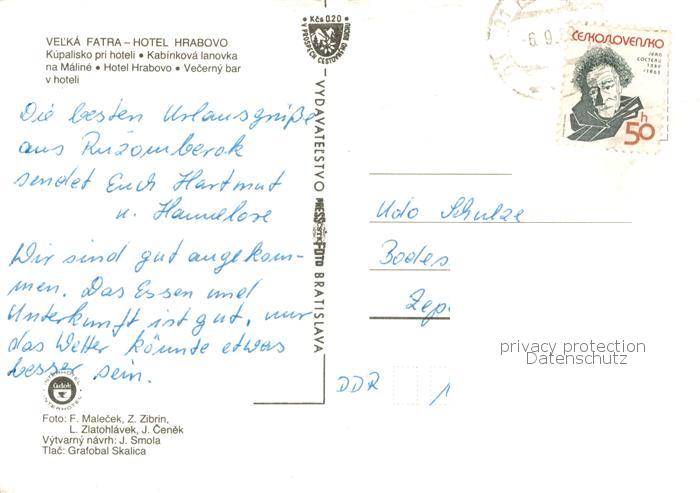 VEĽKÁ FATRA – HOTEL HRABOVO
Kúpalisko pri hoteli • Kabínková lanovka
na Máliné • Hotel Hrabovo • Večerný bar
v hoteli
Die besten Urlausgrüße
aus Ružomberok
sendet Euch Hartmut
u. Hannelore
Wir sind gut angekom-
men. Das Essen und
Unterkunft ist gut, nur
das Wetter könnte etwas
besser sein.
INTERHOTEL
INTERHOTEL
Foto: F. Maleček, Z. Zibrin,
L. Zlatohlávek, J. Čeněk
Výtvarný návrh: J. Smola
Tlač: Grafobal Skalica
Kčs 0.20
V PROSPECH CESTOVNÉHO RUCHU
VYDAVATEĽSTVO
PRESSFOTO
BRATISLAVA
6.9.
ČESKOSLOVENSKO
JEAN
COCTEAU
1889
1963
50h
Udo Schulze
Bodes
Zep
DDR 1
privacy protection
Datenschutz